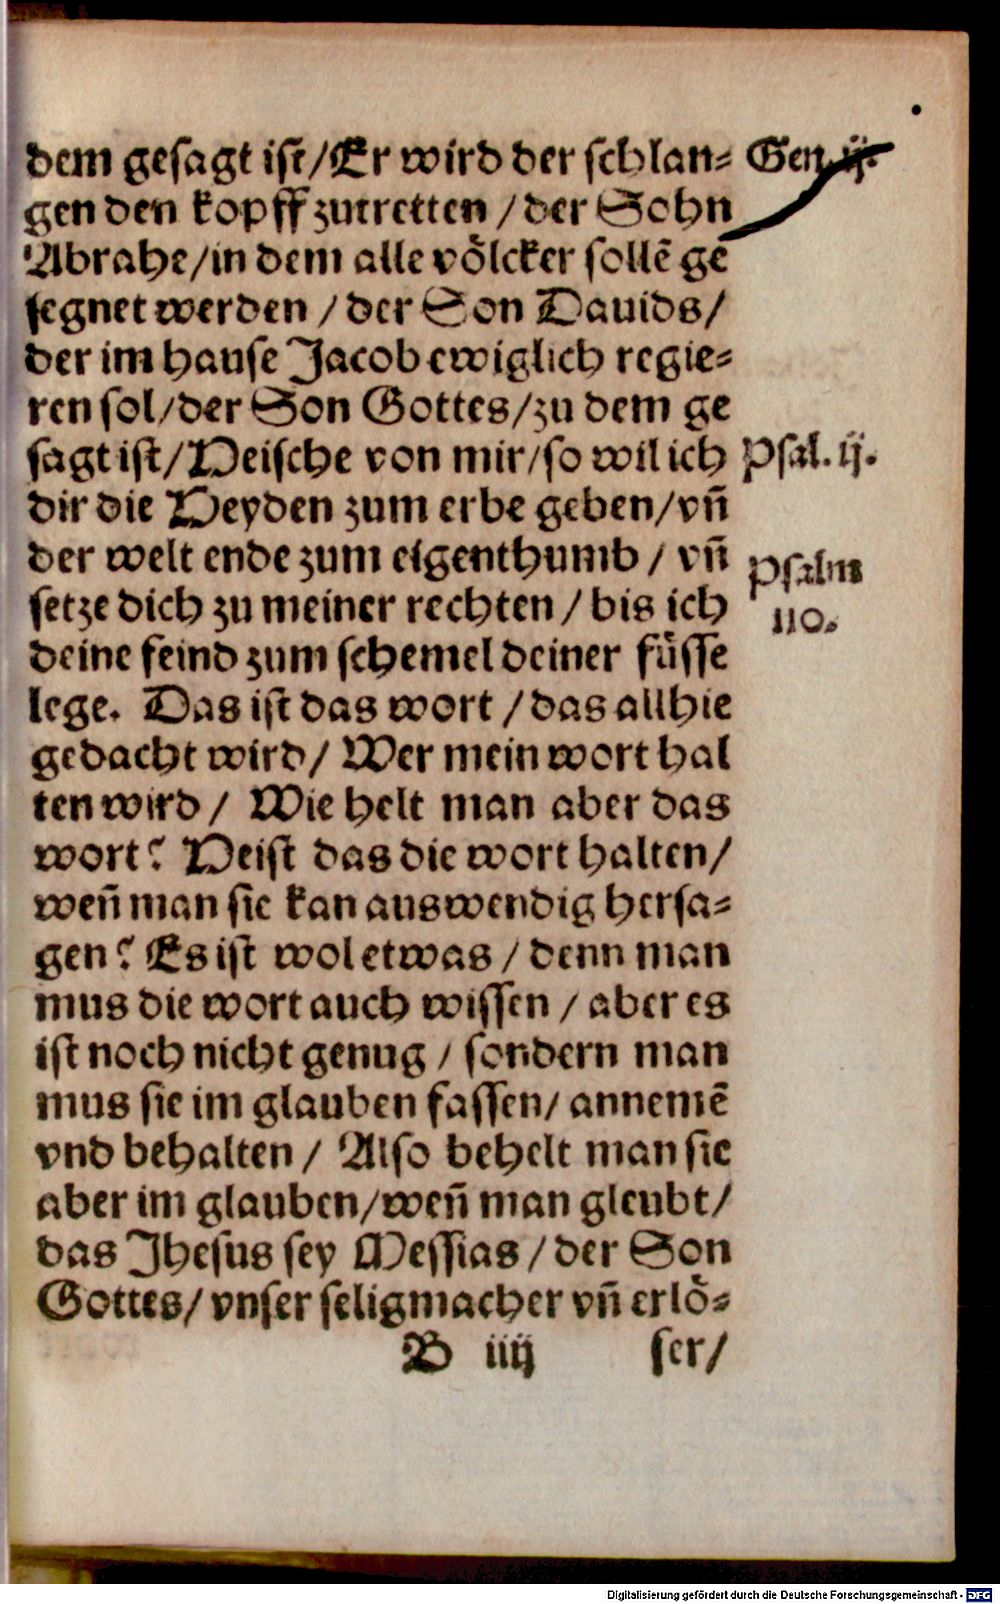 dem gesagt ist/Er wird der schlan= Gen. ij.
gen den kopff zutretten / der Sohn
Abrahe/in dem alle võlcker sollẽ ge
segnet werden / der Son Dauids/
der im hause Jacob ewiglich regie=
ren sol/der Son Gottes/zu dem ge
sagt ist/Heische von mir/so wil ich Psal. ij.
dir die Heyden zum erbe geben/vñ
der welt ende zum eigenthumb / vñ Psalm
setze dich zu meiner rechten / bis ich 110.
deine feind zum schemel deiner füsse
lege. Das ist das wort / das allhie
gedacht wird/ Wer mein wort hal
ten wird / Wie helt man aber das
wort? Heist das die wort halten/
weñ man sie kan auswendig hersa=
gen? Es ist wol etwas / denn man
mus die wort auch wissen / aber es
ist noch nicht genug / sondern man
mus sie im glauben fassen/ annemẽ
vnd behalten / Also behelt man sie
aber im glauben/weñ man gleubt/
das Jhesus sey Messias / der Son
Gottes/ vnser seligmacher vñ erlö=
B iiij ser/
Digitalisierung gefördert durch die Deutsche Forschungsgemeinschaft - DFG